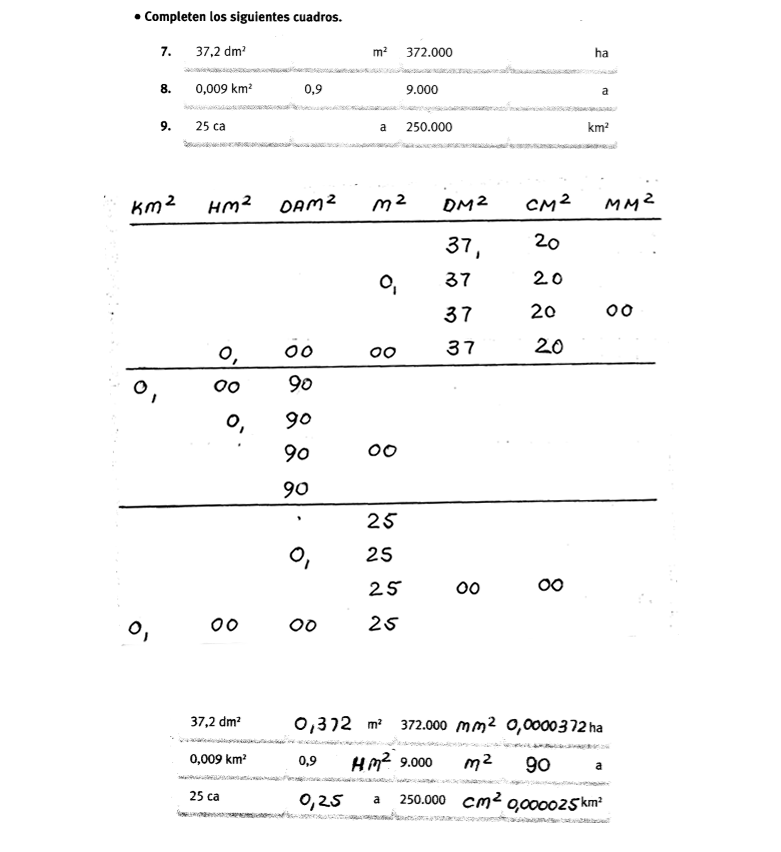 • Completen los siguientes cuadros.
7. 37,2 dm² m² 372.000 ha
8. 0,009 km² 0,9 9.000 a
9. 25 ca a 250.000 km²
KM² HM² DAM² M² DM² CM² MM²
37, 20
0, 37 20
37 20 00
0, 00 00 37 20
0, 00 90
0, 90
90 00
90
25
0, 25
25 00 00
0, 00 00 25
37,2 dm² 0,372 m² 372.000 mm² 0,0000372 ha
0,009 km² 0,9 HM² 9.000 m² 90 a
25 ca 0,25 a 250.000 cm² 0,000025 km²